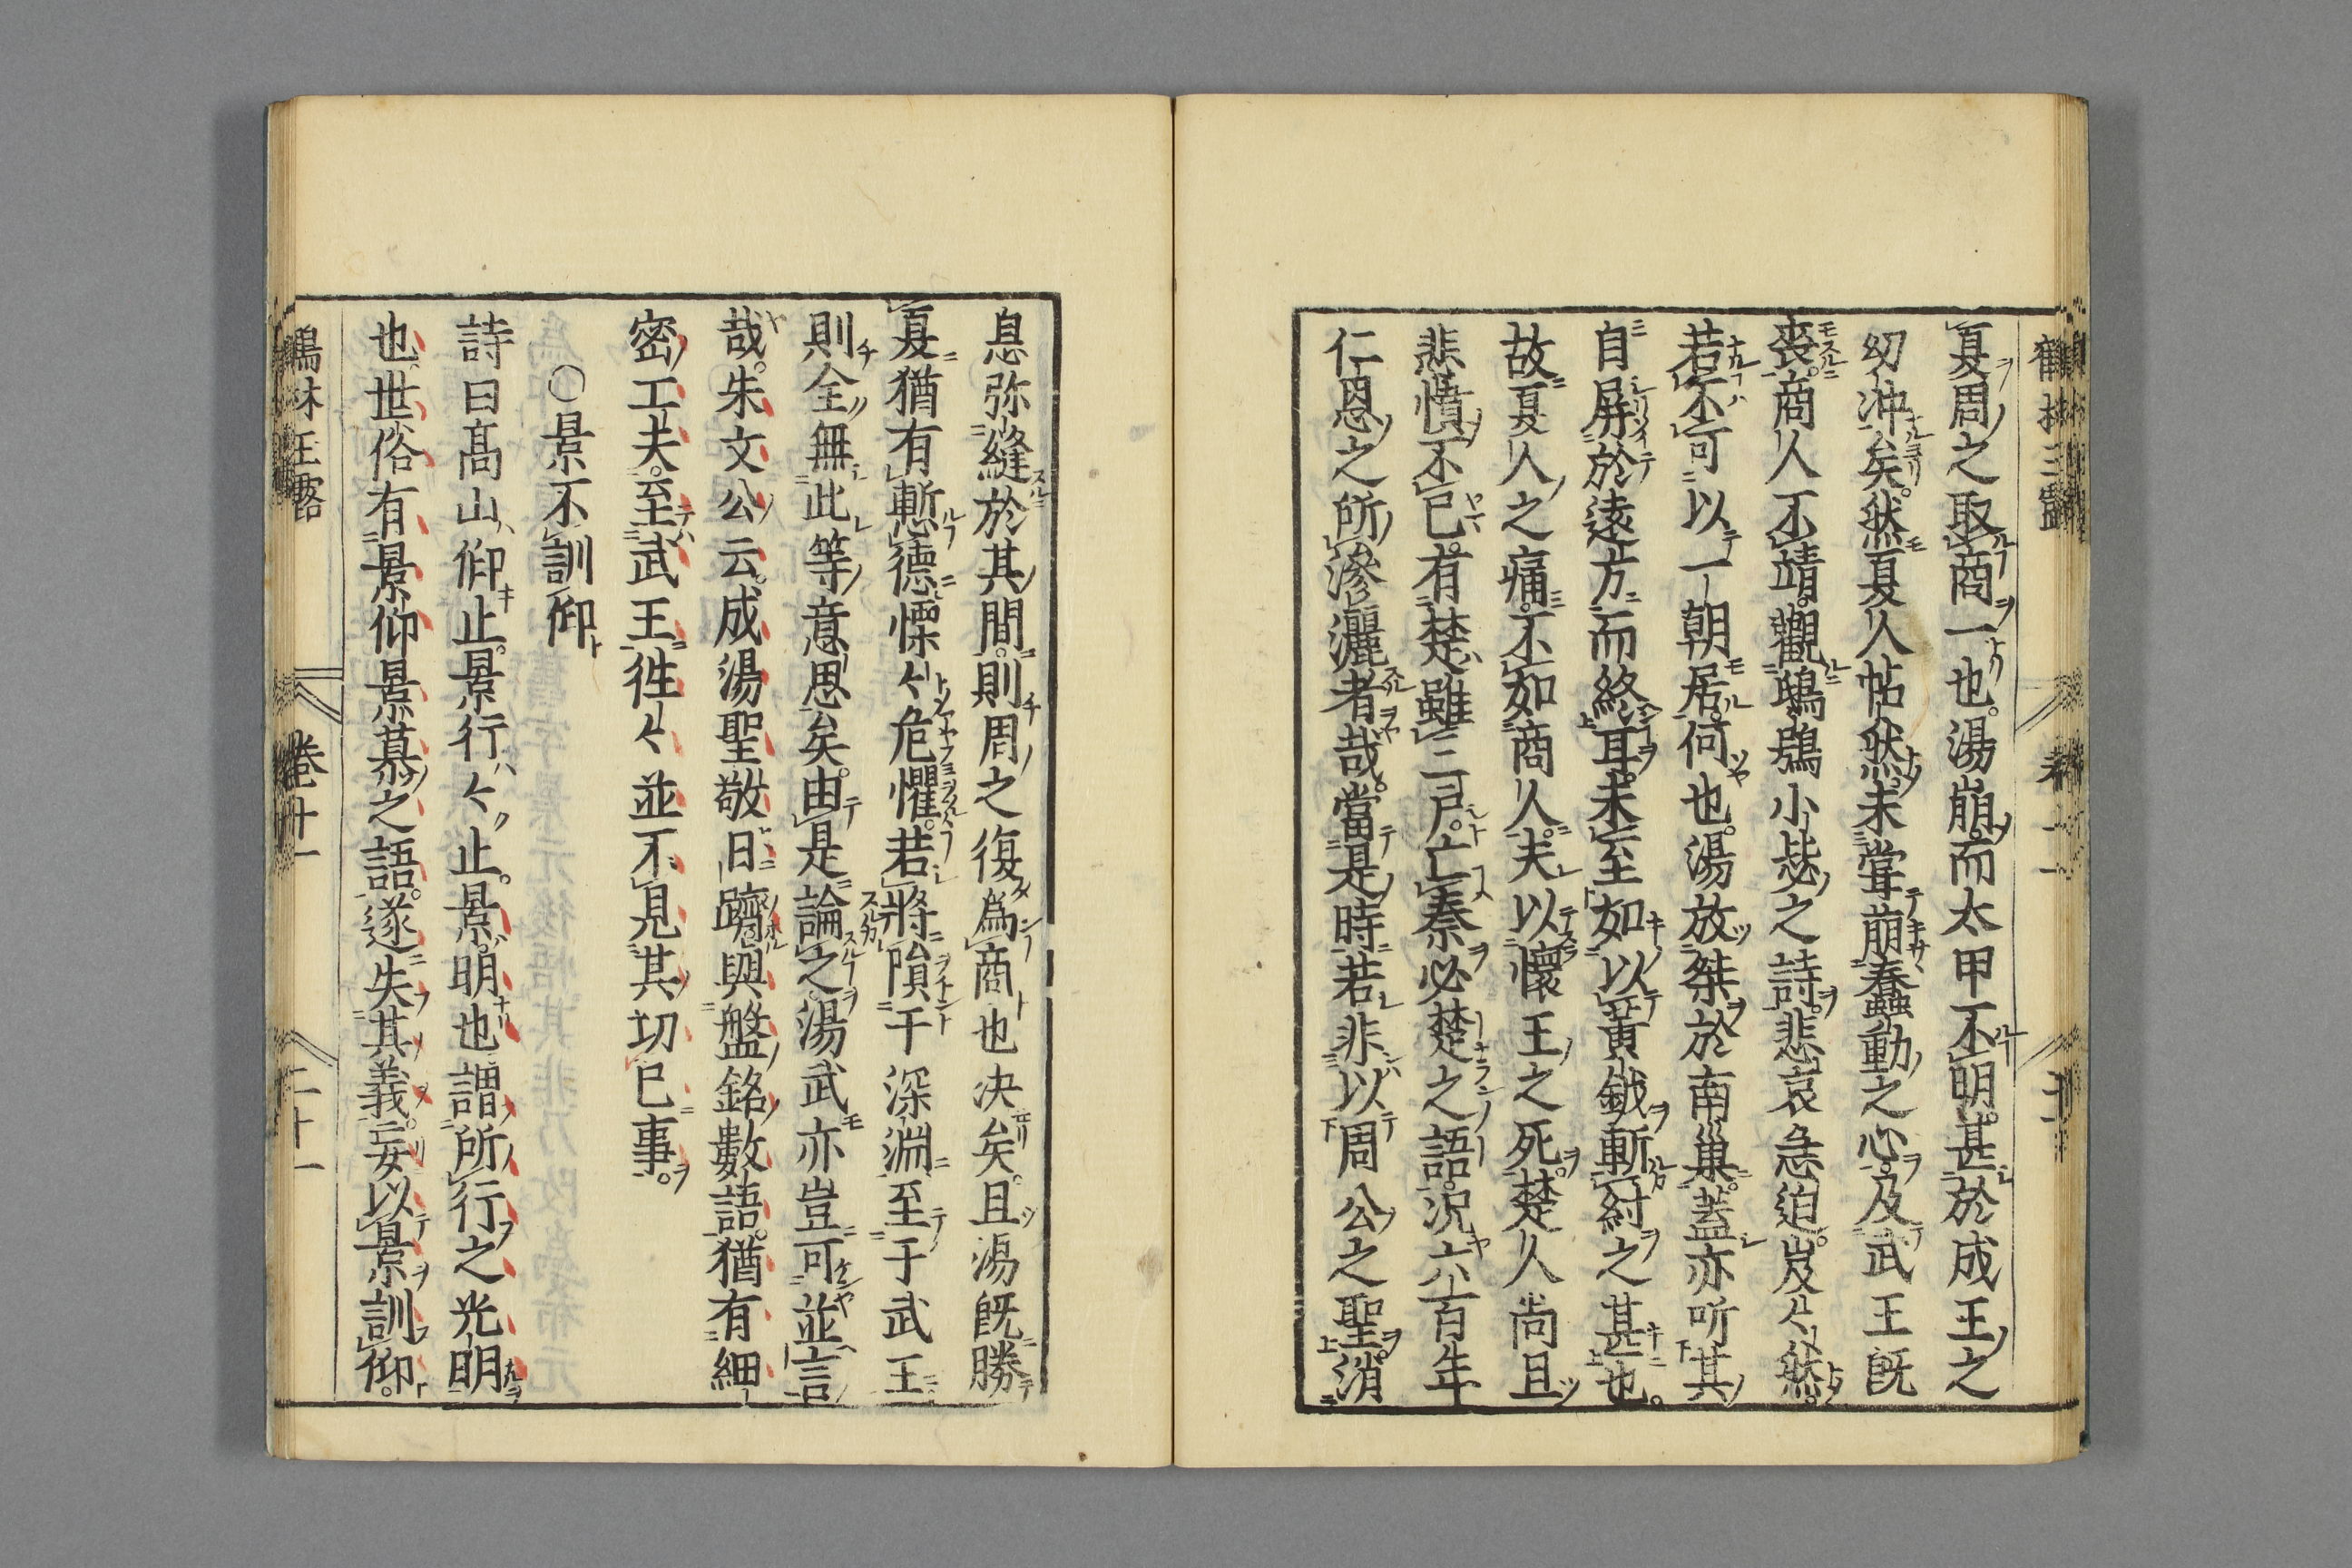 夏周之取商一也湯崩而太甲不明甚於成王之
幼冲矣然夏人帖然未甞崩蠢動之心及武王既
喪商人不靖觀鴟鴞小毖之詩悲哀急迫岌々然
若不可以一朝居何也湯放桀於南巢蓋亦听其
自屏於遠方而終耳未至如以黃鉞斬紂之甚也
故夏人之痛不如商人夫以懷王之死楚人尚且
悲憤不已有楚雖三戸亡秦必楚之語况六百年
仁恩之所滲灑者哉當是時若非以周公之聖消
息弥縫於其間則周之復爲商也决矣且湯既勝
夏猶有慙德慄々危懼若將隕于深淵至于武王
則全無此等意思矣由是論之湯武亦豈可並言
哉朱文公云成湯聖敬日躋與盤銘數語猶有細
密工夫至武王徃々並不見其切已事
○景不訓仰
詩曰高山仰止景行々止景明也謂所行之光明
也世俗有景仰景慕之語遂失其義妄以景訓仰
卷十一
二十一